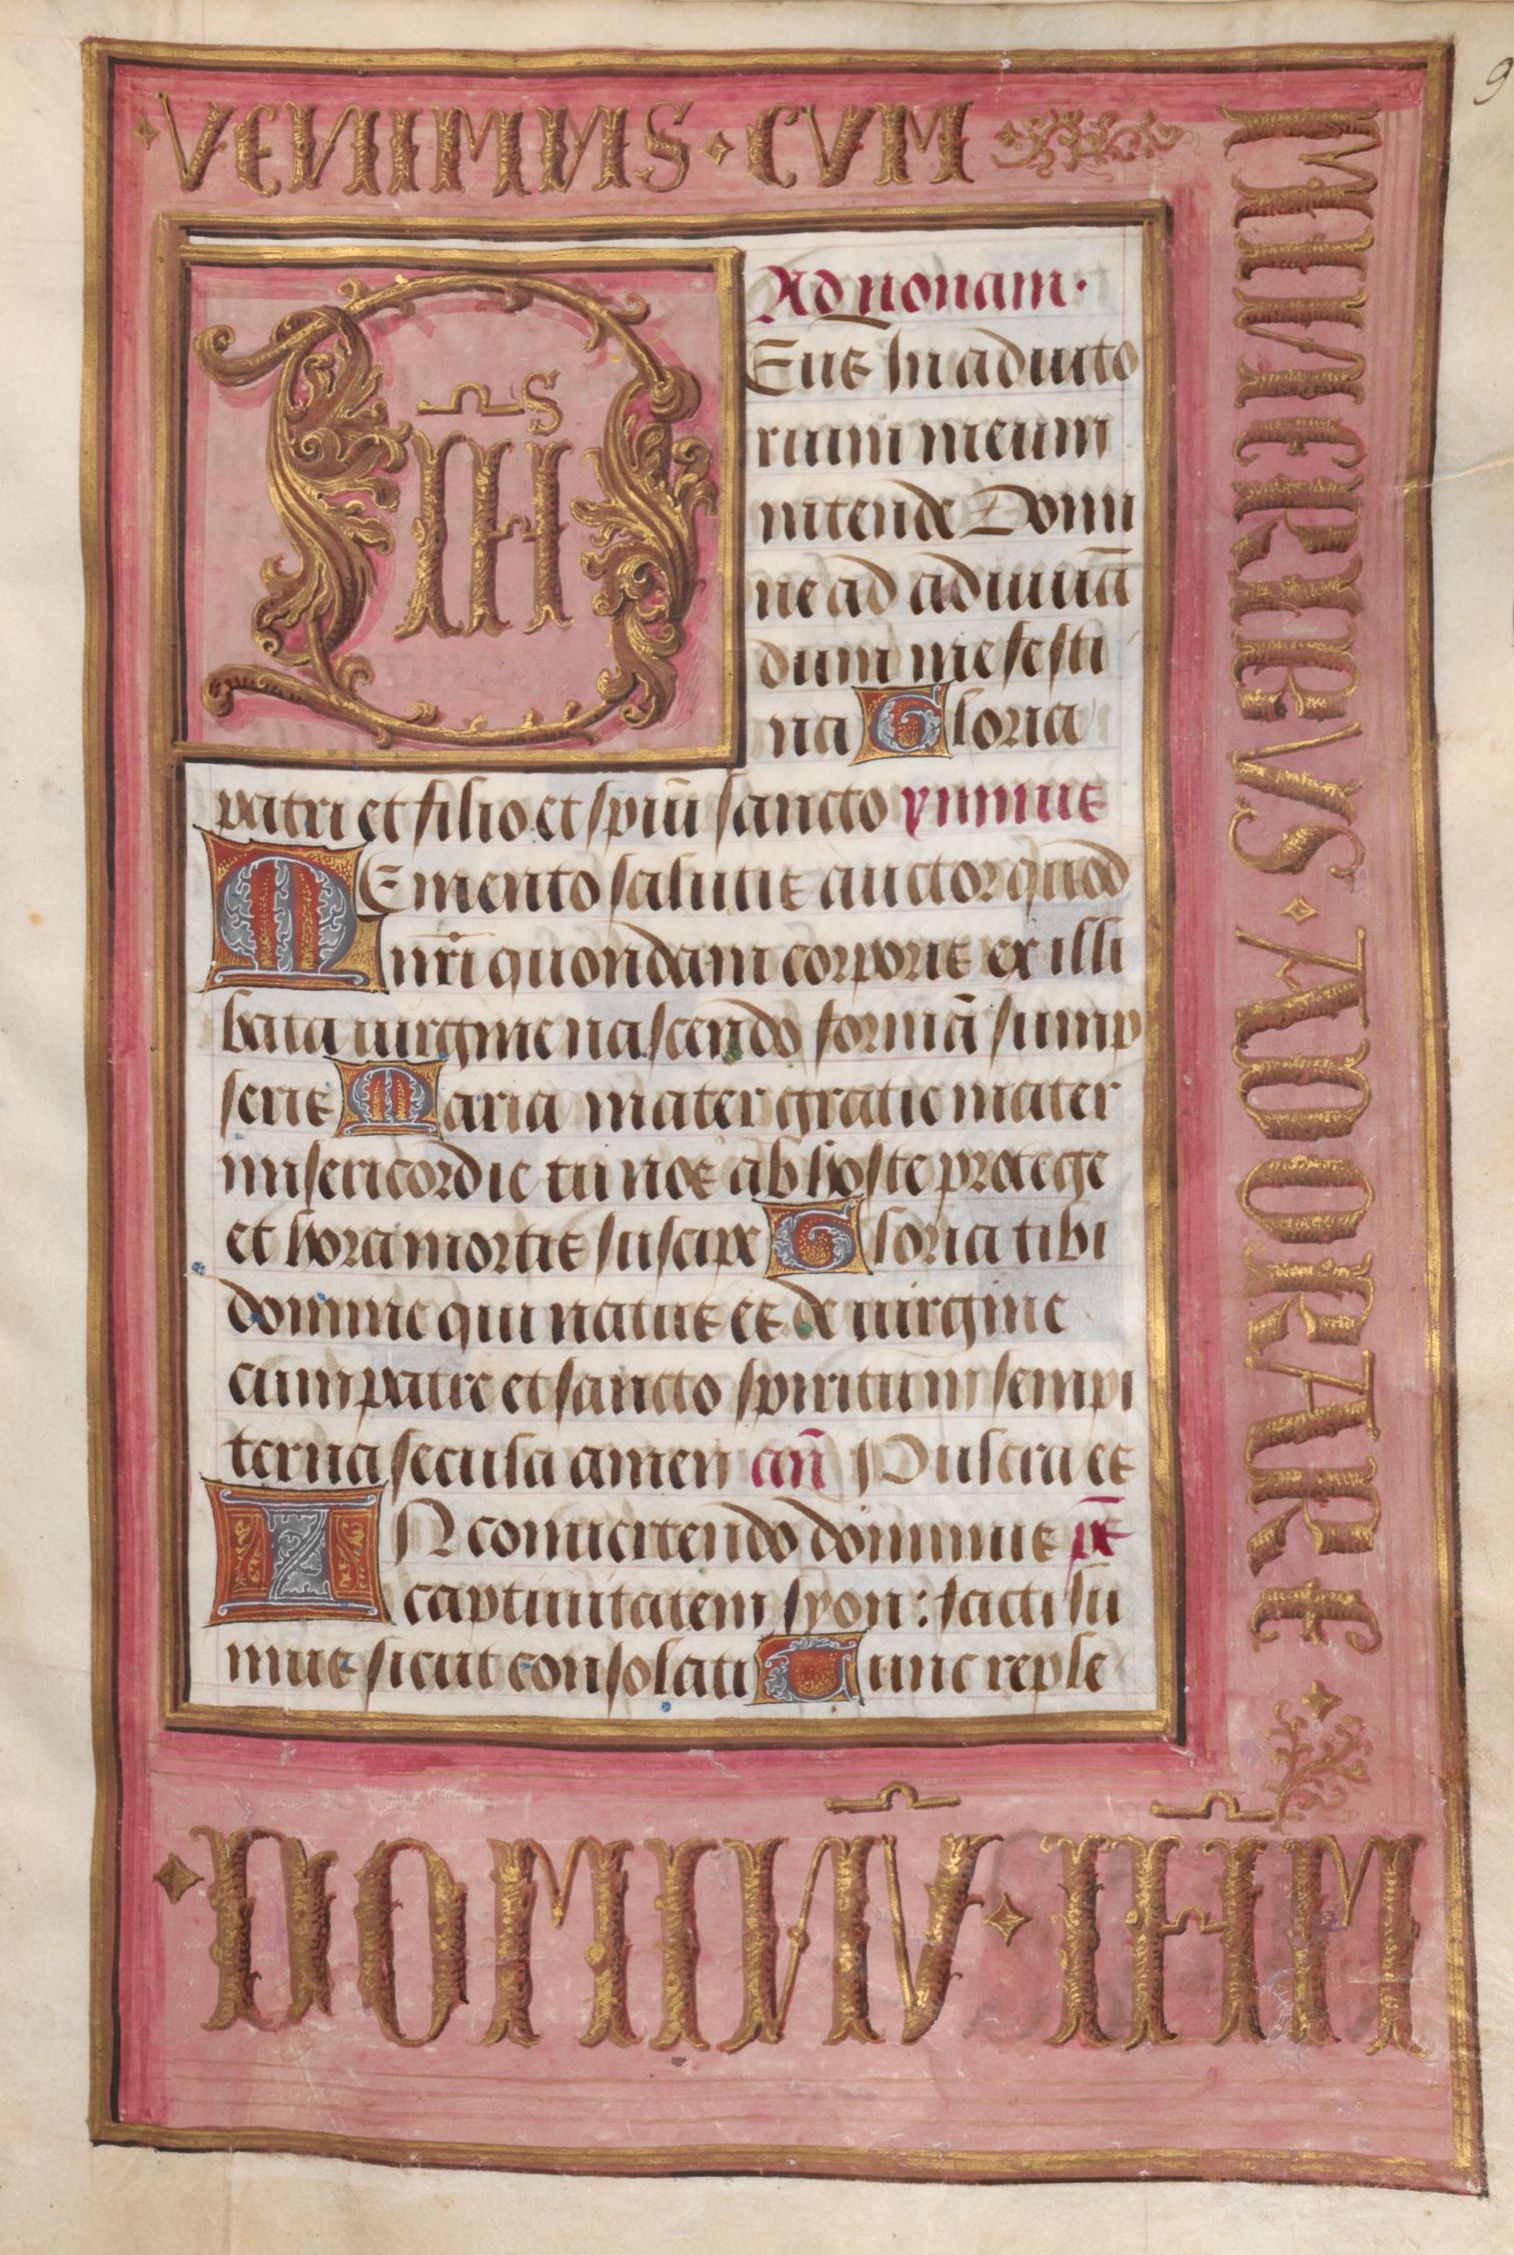 VENIMUS · CVM
MUNERIBVS · ADORARE
DOMINŪ · IHM̄
IHS̄
Ad nonam·
Eus in adiuto
rium meum
intende Domi
ne ad adiuuā
dum me festi
na Gloria
patri et filio et spiū sancto ymnus
MEmento salutis auctor quod
nr̄i quondam corporis ex illi
bata uirgine nascendo formā sump
seris Maria mater gratie mater
misericordie tu nos ab hoste protege
et hora mortis suscipe Gloria tibi
domine qui natus es de uirgine
cum patre et sancto spiritu in sempi
terna secula amen an̄ Pulcra es
IN conuertendo dominus ps̄
captiuitatem syon: facti su
mus sicut consolati Tunc reple
9